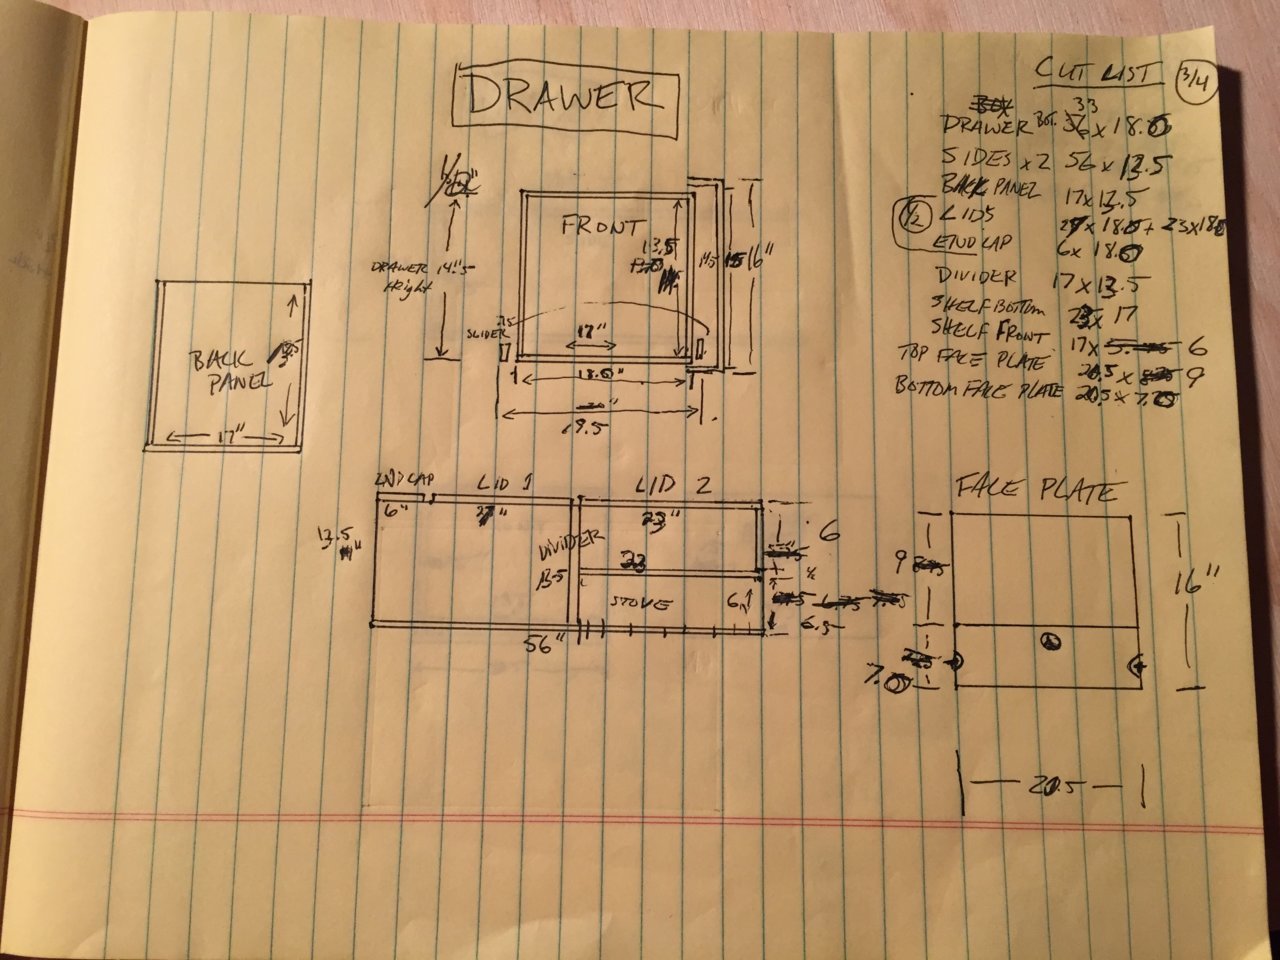 DRAWER
CUT LIST 3/4
33
DRAWER BOT. 36 x 18.0
SIDES x 2 56 x 13.5
BACK PANEL 17 x 13.5
1/2 LIDS 27 x 18.0 + 23 x 18.0
END CAP 6 x 18.0
DIVIDER 17 x 13.5
SHELF BOTTOM 23 x 17
SHELF FRONT 17 x 6
TOP FACE PLATE 20.5 x 9
BOTTOM FACE PLATE 20.5 x 7.0
FRONT
13.5
16"
DRAWER Height 14".5
SLIDER
17"
18.0"
19.5
BACK
PANEL
17"
END CAP LID 1 LID 2
6" 27" 23"
13.5
DIVIDER
13.5
23
6
1/2
STOVE
6.5
56"
FACE PLATE
9
16"
7.0
20.5